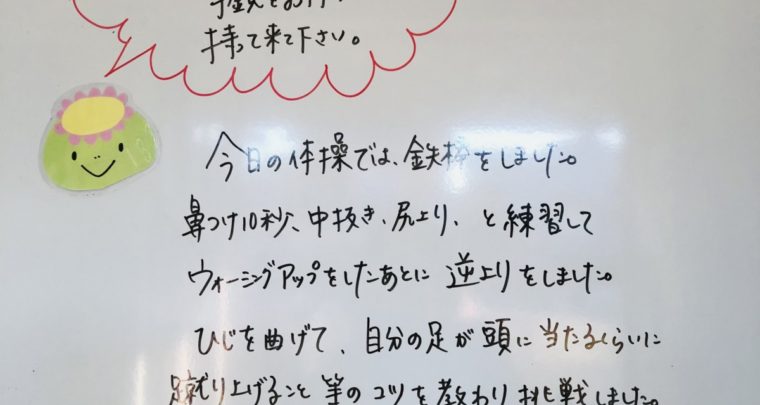 持って来て下さい。
今日の体操では、鉄棒をしました。
鼻つけ10秒、中抜き、尻上り、と練習して
ウォーミングアップをしたあとに 逆上りをしました。
ひじを曲げて、自分の足が頭に当たるくらいに
蹴り上げること 等のコツを教わり挑戦しました。